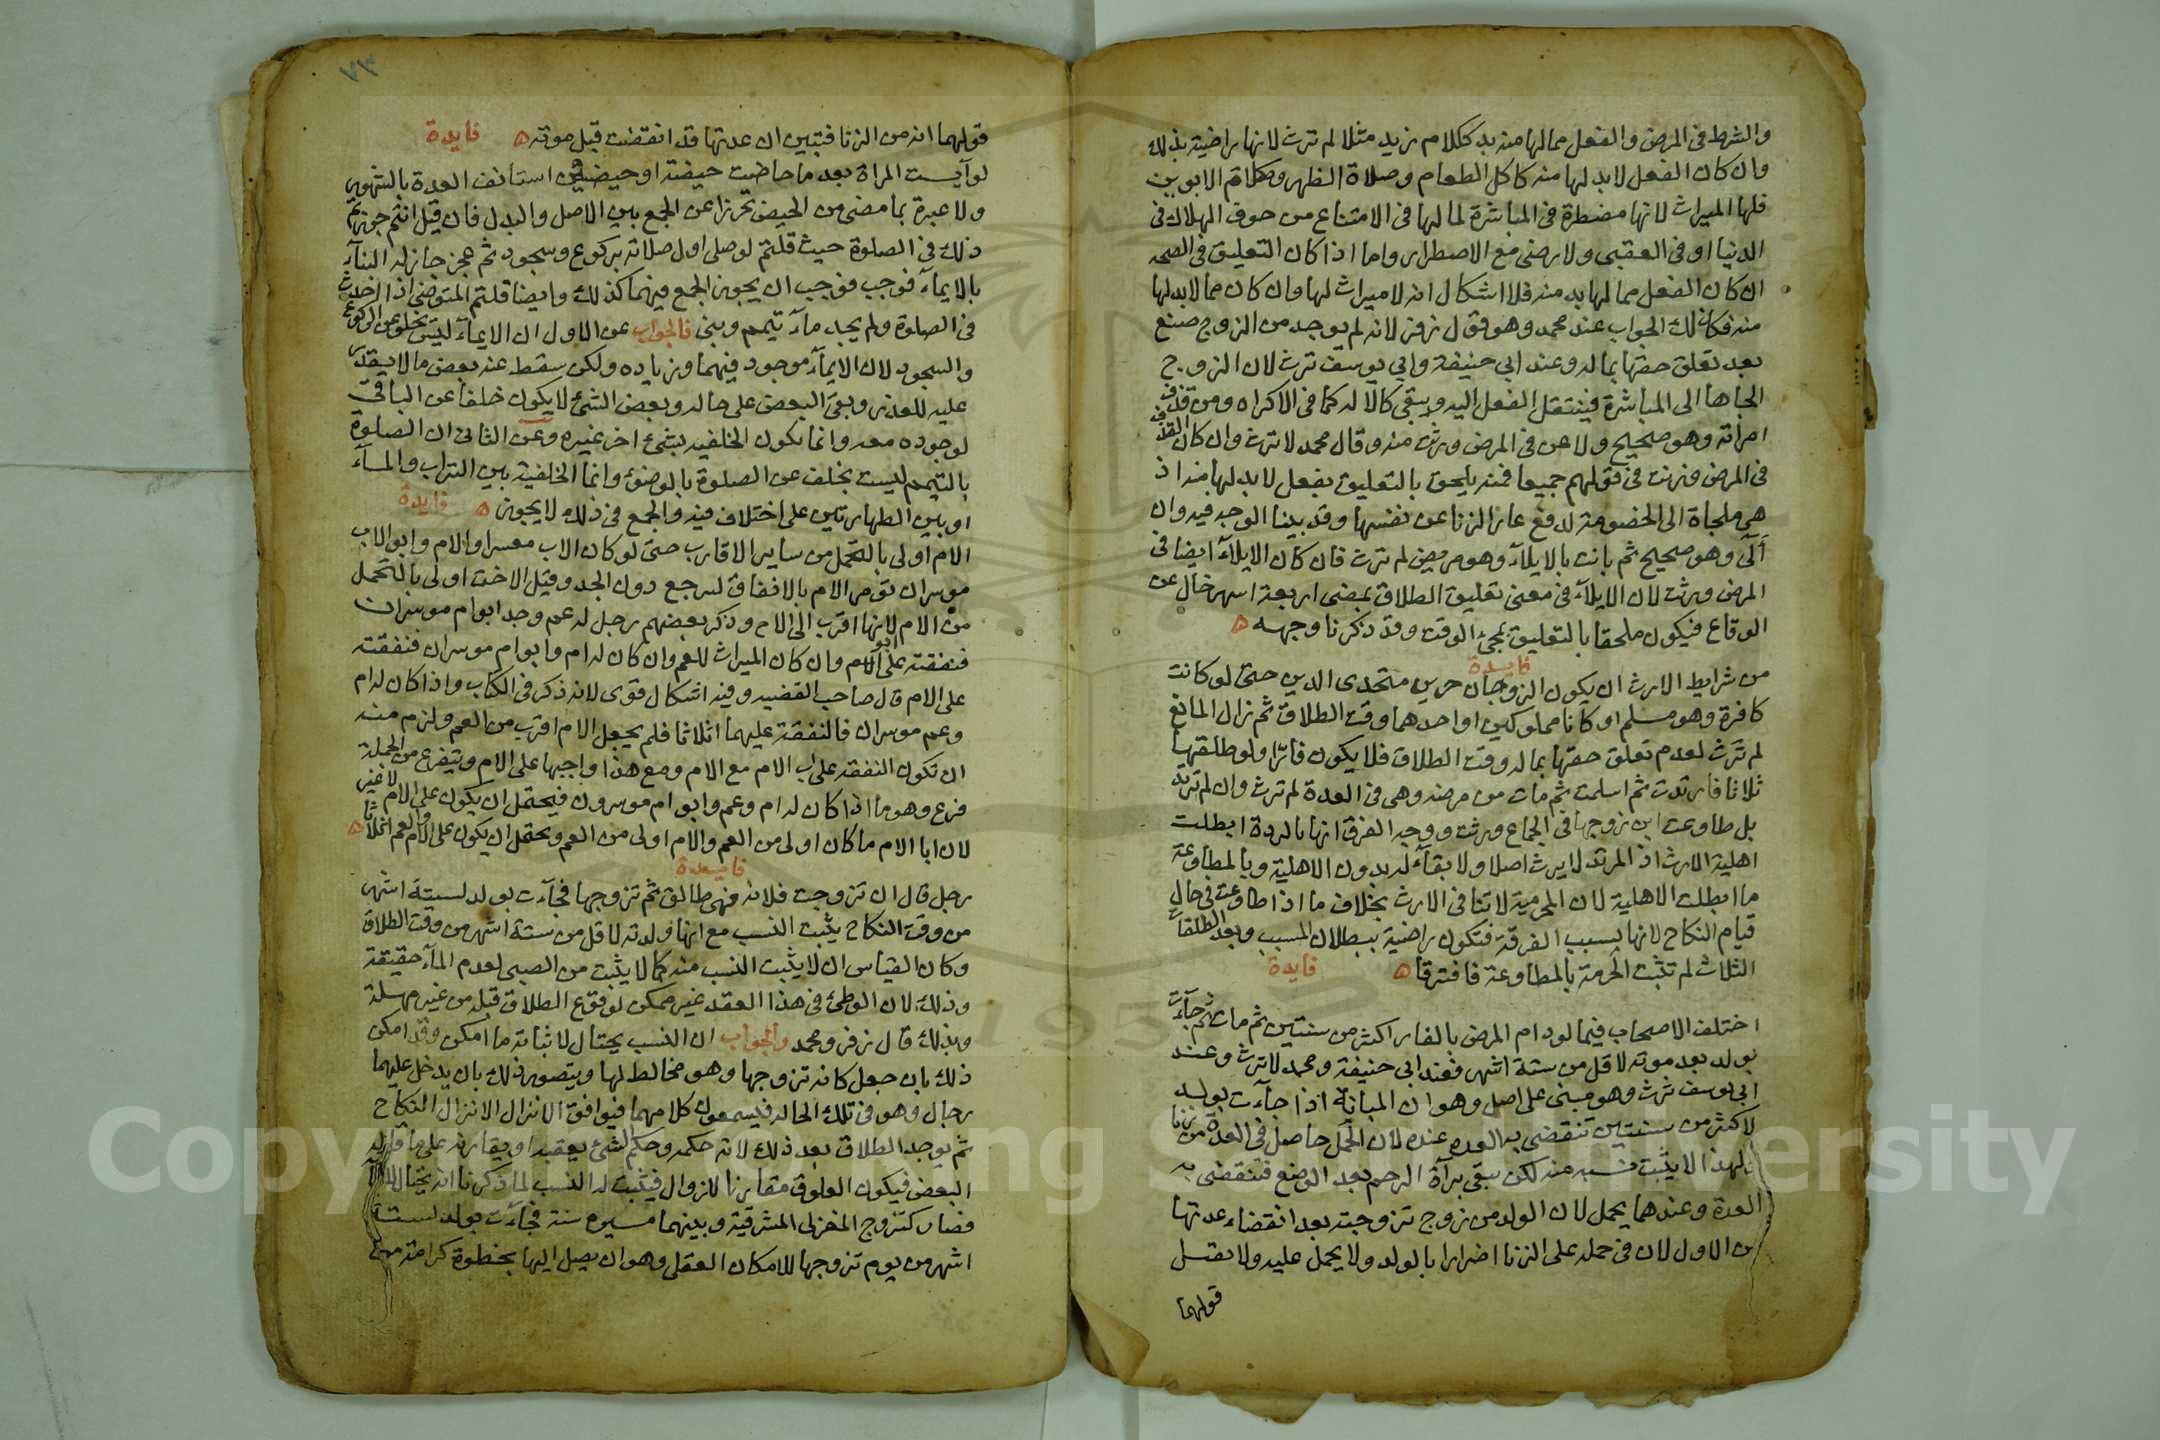 والشرط في المرض والفعل مما لها منه بد ككلام زيد مثلا لم ترث لانها راضية بذلك
وان كان الفعل لا بد لها منه كاكل الطعام وصلاة الظهر وكلام الابوين
فلها الميراث لانها مضطرة في المباشرة لما لها في الامتناع من خوف الهلاك في
الدنيا او في العقبى ولا رضى مع الاضطرار واما اذا كان التعليق في الصحه
ان كان الفعل مما لها بد منه فلا اشكال انه لا ميراث لها وان كان مما لا بد لها
منه فكذلك الجواب عند محمد وهو قول زفر لانه لم يوجد من الزوج صنع
بعد تعلق حقها بماله وعند ابي حنيفة وابي يوسف ترث لان الزوج
الجاها الى المباشرة فينتقل الفعل اليه ويبقى كالآلة كما في الاكراه ومن قذف
امراته وهو صحيح ولاعن في المرض ورثت منه وقال محمد لا ترث وان كان القذف
في المرض ورثت في قولهم جميعا فنه يلحق بالتعليق بفعل لا بد لها منه اذ
هي ملجاة الى الخصومة لدفع عار الزنا عن نفسها وقد بينا الوجه فيه وان
آلى وهو صحيح ثم بانت بالايلآء وهو مريض لم ترث فان كان الايلآء ايضا في
المرض ورثت لان الايلآء في معنى تعليق الطلاق بمضى اربعة اشهر خال عن
الوقاع فيكون ملحقا بالتعليق بمجئ الوقت وقد ذكرنا وجهه ه
فايدة
من شرايط الارث ان يكون الزوجان حرين متحدى الدين حتى لو كانت
كافرة وهو مسلم او كانا مملوكين او احدهما وقت الطلاق ثم زال المانع
لم ترث لعدم تعلق حقها بماله وقت الطلاق فلا يكون فارّا ولو طلقها
ثلاثا فارتدت ثم اسلمت ثم مات من مرضه وهي في العدة لم ترث وان لم ترتد
بل طاوعت ابن زوجها في الجماع ورثت ووجه الفرق انها بالردة ابطلت
اهلية الارث اذ المرتد لا يرث اصلا ولا بقآء له بدون الاهلية وبالمطاوعة
ما ابطلت الاهلية لان المحرمية لا تنافى الارث بخلاف ما اذا طاوعت في حال
قيام النكاح لانها بسبب الفرقة فتكون راضية ببطلان المسبب وبعد الطلقات
الثلاث لم تثبت الحرمة بالمطاوعة فافترقا ه فايدة
اختلف الاصحاب فيما لو دام المرض بالفار اكثر من سنتين ثم مات ثم جآءت
بولد بعد موته لاقل من ستة اشهر فعند ابي حنيفة ومحمد لا ترث وعند
ابي يوسف ترث وهو مبنى على اصل وهو ان المبانة اذا جآءت بولد
لاكثر من سنتين تنقضى به العدة عنده لان الحمل حاصل في العدة من زنا
ولهذا لا يثبت نسبه منه لكن يبقى برآة الرحم بعد الوضع فتنقضى به
العدة وعندهما يحمل لان الولد من زوج تزوجته بعد انقضاء عدتها
من الاول لان في حمله على الزنا اضرارا بالولد ولا يحمل عليه ولا يقبل
قولهما
٧٣
قولهما انه من الزنا فتبين ان عدتها قد انقضت قبل موته ه فايدة
لو آيست المراة بعد ما حاضت حيضة او حيضتين استانف العدة بالشهور
ولا عبرة بما مضى من الحيض تحرزا عن الجمع بين الاصل والبدل فان قيل انتم جوزتم
ذلك في الصلوة حيث قلتم لو صلى اول صلاته بركوع وسجود ثم عجز جاز له البنآء
بالايمآء فوجب فوجب ان يجوز الجمع فيهما كذلك وايضا قلتم المتوضى اذا احدث
في الصلوة ولم يجد مآء تيمم وبنى فالجواب عن الاول ان الايمآء ليس بخلف عن الركوع
والسجود لان الايمآء موجود فيهما وزياده ولكن سقط عنه بعض ما لا يقدر
عليه للعذر وبقى البعض على حاله وبعض الشئ لا يكون خلفا عن الباقى
لوجوده معه وانما يكون الخلفيه بشئ اخر غيره وعن الثانى ان الصلوة
بالتيمم ليست بخلف عن الصلوة بالوضوء وانما الخلفية بين التراب والمآء
او بين الطهارتين على اختلاف فيه والجمع في ذلك لا يجوز ه فايدة
الام اولى بالتحمل من ساير الاقارب حتى لو كان الاب معسرا والام وابو الاب
موسران تؤمر الام بالانفاق لترجع دون الجد وقيل الاخت اولى بالتحمل
من الام لانها اقرب الى الاخ وذكر بعضهم رجل له عم وجد ابو ام موسران
فنفقته على ابو الام وان كان الميراث للعم وان كان له ام وابو ام موسران فنفقته
على الام قال صاحب القضيه وفيه اشكال قوى لانه ذكر في الكتاب واذا كان له ام
وعم موسران فالنفقة عليهما اثلاثا فلم يجعل الام اقرب من العم ولزم منه
ان تكون النفقة على اب الام مع الام ومع هذا اوجبها على الام ويتفرع من الجملة
فرع وهو ما اذا كان له ام وعم وابو ام موسرون فيحتمل ان يكون على الام لا غير
لان ابا الام ما كان اولى من العم والام اولى من العم ويحتمل ان يكون على الام والعم اثلاثا ه
فايدة
رجل قال ان تزوجت فلانة فهى طالق ثم تزوجها فجآءت بولد لستة اشهر
من وقت النكاح يثبت النسب مع انها ولدته لاقل من ستة اشهر من وقت الطلاق
وكان القياس ان لا يثبت النسب منه كما لا يثبت من الصبى لعدم المآء حقيقة
وذلك لان الوطئ في هذا العقد غير ممكن لوقوع الطلاق قبله من غير مهلة
وبذلك قال زفر ومحمد والجواب ان النسب يحتال لاثباته ما امكن وقد امكن
ذلك بان جعل كانه تزوجها وهو مخالط لها ويتصور ذلك بان يدخل عليهما
رجال وهو في تلك الحالة فيسمعون كلامهما فيوافق الانزال الانزال النكاح
ثم يوجد الطلاق بعد ذلك لانه حكمه وحكم الشئ يعقبه او يقارنه على ما قاله
البعض فيكون العلوق مقارنا للزوال فيثبت له النسب لما ذكرنا انه يحتال لاثباته
فصار كتزوج المغربى المشرقية وبينهما مسيرة سنة فجآءت بولد لستة
اشهر من يوم تزوجها للامكان العقلى وهو ان يصل اليها بخطوة كرامة من
Copyright © King Saud University